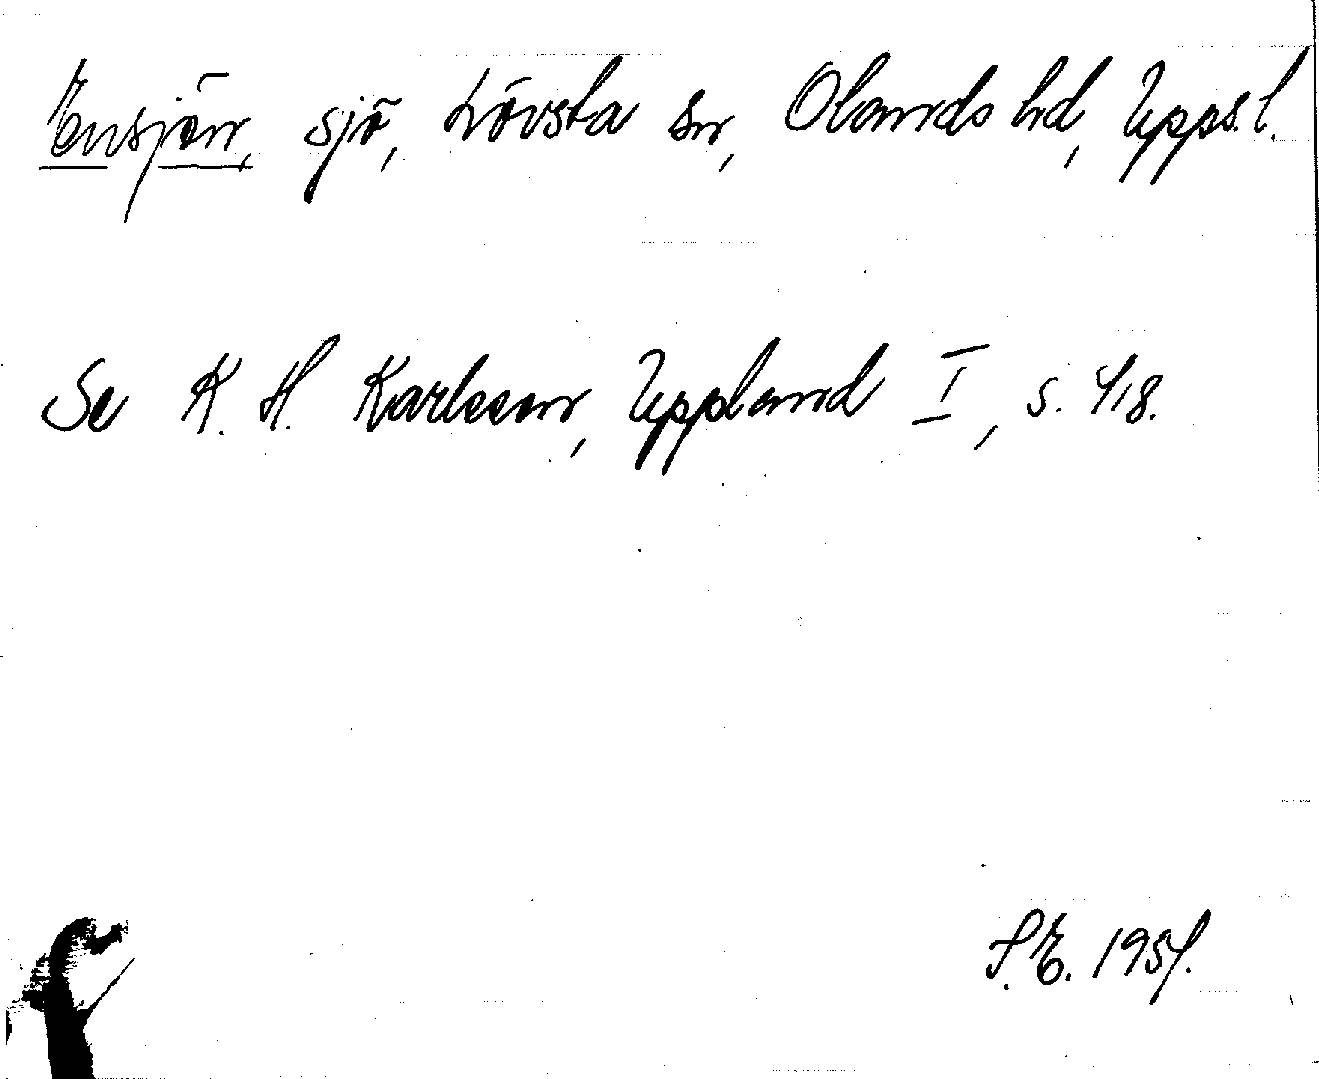 Ensjön, sjö, Lövsta sn, Olands hd, Uppsl.
Se K. H. Karlsson, Uppland I, s. 418.
S.E. 1951.